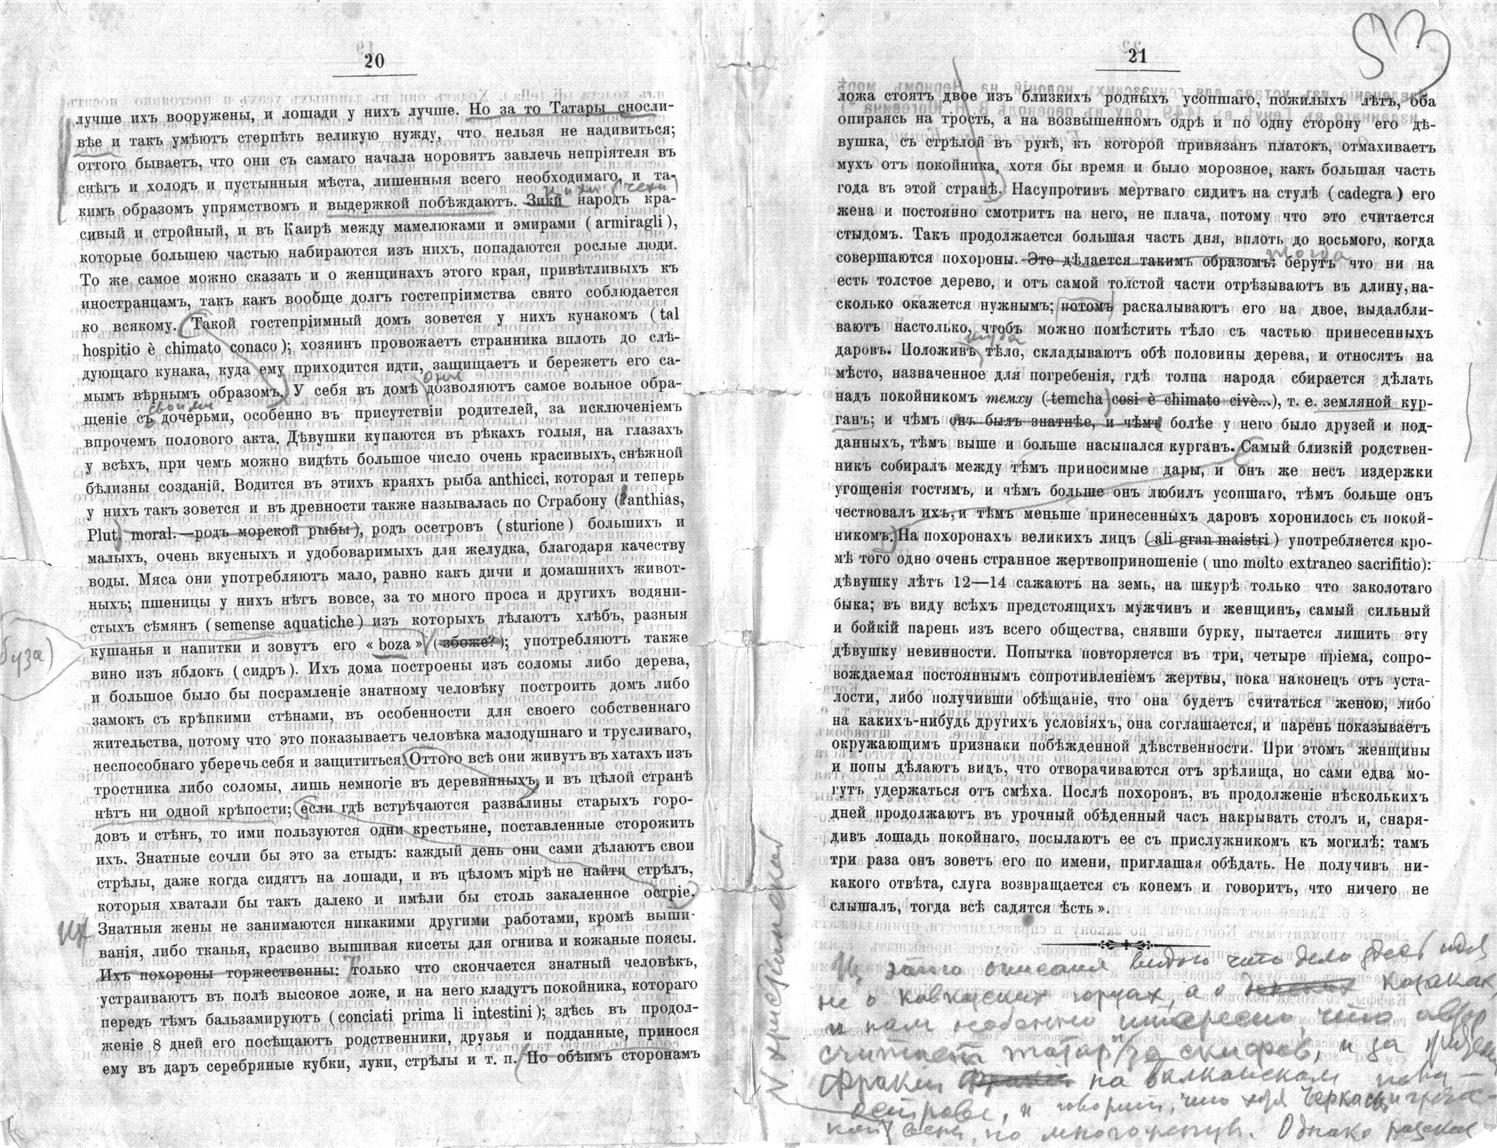 20
лучше ихъ вооружены, и лошади у нихъ лучше. Но за то Татары сносли-
вѣе и такъ умѣютъ стерпѣть великую нужду, что нельзя не надивиться;
оттого бываетъ, что они съ самаго начала норовятъ завлечь непріятеля въ
снѣгъ и холодъ и пустынныя мѣста, лишенныя всего необходимаго, и та-
кимъ образомъ упрямствомъ и выдержкой побѣждаютъ. Зики народъ кра-
сивый и стройный, и въ Каирѣ между мамелюками и эмирами (armiragli),
которые большею частью набираются изъ нихъ, попадаются рослые люди.
То же самое можно сказать и о женщинахъ этого края, привѣтливыхъ къ
иностранцамъ, такъ какъ вообще долгъ гостепріимства свято соблюдается
ко всякому. Такой гостепріимный домъ зовется у нихъ кунакомъ (tal
hospitio è chimato conaco); хозяинъ провожаетъ странника вплоть до слѣ-
дующаго кунака, куда ему приходится идти, защищаетъ и бережетъ его са-
мымъ вѣрнымъ образомъ. У себя въ домѣ дозволяютъ самое вольное обра-
они
своими
щеніе съ дочерьми, особенно въ присутствіи родителей, за исключеніемъ
впрочемъ полового акта. Дѣвушки купаются въ рѣкахъ голыя, на глазахъ
у всѣхъ, при чемъ можно видѣть большое число очень красивыхъ, снѣжной
бѣлизны созданій. Водится въ этихъ краяхъ рыба anthicci, которая и теперь
у нихъ такъ зовется и въ древности также называлась по Страбону (anthias,
Plut. moral. — родъ морской рыбы), родъ осетровъ (sturione) большихъ и
малыхъ, очень вкусныхъ и удобоваримыхъ для желудка, благодаря качеству
воды. Мяса они употребляютъ мало, равно какъ дичи и домашнихъ живот-
ныхъ; пшеницы у нихъ нѣтъ вовсе, за то много проса и другихъ водяни-
стыхъ сѣмянъ (semense aquatiche) изъ которыхъ дѣлаютъ хлѣбъ, разныя
кушанья и напитки и зовутъ его «boza» (збоже?); употребляютъ также
буза)
вино изъ яблокъ (сидръ). Ихъ дома построены изъ соломы либо дерева,
и большое было бы посрамленіе знатному человѣку построить домъ либо
замокъ съ крѣпкими стѣнами, въ особенности для своего собственнаго
жительства, потому что это показываетъ человѣка малодушнаго и трусливаго,
неспособнаго уберечь себя и защититься. Оттого всѣ они живутъ въ хатахъ изъ
тростника либо соломы, лишь немногіе въ деревянныхъ, и въ цѣлой странѣ
нѣтъ ни одной крѣпости; если гдѣ встрѣчаются развалины старыхъ горо-
довъ и стѣнъ, то ими пользуются одни крестьяне, поставленные сторожить
ихъ. Знатные сочли бы это за стыдъ: каждый день они сами дѣлаютъ свои
стрѣлы, даже когда сидятъ на лошади, и въ цѣломъ мірѣ не найти стрѣлъ,
которыя хватали бы такъ далеко и имѣли бы столь закаленное остріе.
Их
Знатныя жены не занимаются никакими другими работами, кромѣ выши-
ванія, либо тканья, красиво вышивая кисеты для огнива и кожаные поясы.
Ихъ похороны торжественны: только что скончается знатный человѣкъ,
устраиваютъ въ полѣ высокое ложе, и на него кладутъ покойника, котораго
передъ тѣмъ бальзамируютъ (conciati prima li intestini); здѣсь въ продол-
женіе 8 дней его посѣщаютъ родственники, друзья и подданные, принося
ему въ даръ серебряные кубки, луки, стрѣлы и т. п. По обѣимъ сторонамъ
21
ложа стоятъ двое изъ близкихъ родныхъ усопшаго, пожилыхъ лѣтъ, оба
опираясь на трость, а на возвышенномъ одрѣ и по одну сторону его дѣ-
вушка, съ стрѣлой въ рукѣ, къ которой привязанъ платокъ, отмахиваетъ
мухъ отъ покойника, хотя бы время и было морозное, какъ большая часть
года въ этой странѣ. Насупротивъ мертваго сидитъ на стулѣ (cadegra) его
жена и постоянно смотритъ на него, не плача, потому что это считается
стыдомъ. Такъ продолжается большая часть дня, вплоть до восьмого, когда
совершаются похороны. Это дѣлается такимъ образомъ: берутъ что ни на
тогда
есть толстое дерево, и отъ самой толстой части отрѣзываютъ въ длину, на-
сколько окажется нужнымъ; потомъ раскалываютъ его на двое, выдалбли-
ваютъ настолько, чтобъ можно помѣстить тѣло съ частью принесенныхъ
туда
даровъ. Положивъ тѣло, складываютъ обѣ половины дерева, и относятъ на
мѣсто, назначенное для погребенія, гдѣ толпа народа сбирается дѣлать
надъ покойникомъ темху (temcha cosi è chimato civè...), т. е. земляной кур-
ганъ; и чѣмъ онъ былъ знатнѣе, и чѣмъ болѣе у него было друзей и под-
данныхъ, тѣмъ выше и больше насыпался курганъ. Самый близкій родствен-
никъ собиралъ между тѣмъ приносимые дары, и онъ же несъ издержки
угощенія гостямъ, и чѣмъ больше онъ любилъ усопшаго, тѣмъ больше онъ
чествовалъ ихъ, и тѣмъ меньше принесенныхъ даровъ хоронилось съ покой-
никомъ. На похоронахъ великихъ лицъ (ali gran maistri) употребляется кро-
мѣ того одно очень странное жертвоприношеніе (uno molto extraneo sacrifitio):
дѣвушку лѣтъ 12—14 сажаютъ на земь, на шкурѣ только что заколотаго
быка; въ виду всѣхъ предстоящихъ мужчинъ и женщинъ, самый сильный
и бойкій парень изъ всего общества, снявши бурку, пытается лишить эту
дѣвушку невинности. Попытка повторяется въ три, четыре пріема, сопро-
вождаемая постояннымъ сопротивленіемъ жертвы, пока наконецъ отъ уста-
лости, либо получивши обѣщаніе, что она будетъ считаться женою, либо
на какихъ-нибудь другихъ условіяхъ, она соглашается, и парень показываетъ
окружающимъ признаки побѣжденной дѣвственности. При этомъ женщины
и попы дѣлаютъ видъ, что отворачиваются отъ зрѣлища, но сами едва мо-
гутъ удержаться отъ смѣха. Послѣ похоронъ, въ продолженіе нѣсколькихъ
дней продолжаютъ въ урочный обѣденный часъ накрывать столъ и, снаря-
дивъ лошадь покойнаго, посылаютъ ее съ прислужникомъ къ могилѣ: тамъ
три раза онъ зоветъ его по имени, приглашая обѣдать. Не получивъ ни-
какого отвѣта, слуга возвращается съ конемъ и говоритъ, что ничего не
слышалъ, тогда всѣ садятся ѣсть».
Из этого описания видно что дело здесь идет
не о кавказских горцах, а о Козаках,
и нам особенно интересно, что автор
считает татар за скифов, и за
Фракии на Балканском полу-
острове, и говорит, что
Однако